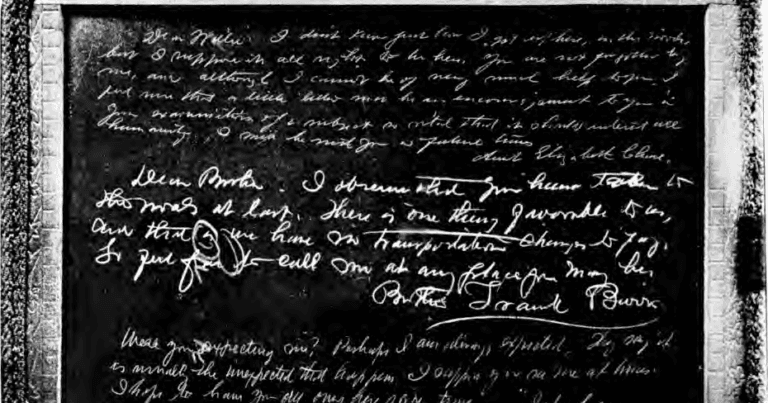 Dear Willie: I don't know just how I got up here, in this
but I suppose it's all right to be here. You are not forgotten by
me, and although I cannot be of very much help to you. I
just know that a little letter may be an encouragement to you in
your examination of a subject so vital that it should interest all
humanity. I must
Aunt Elizabeth
Dear Brother. I observe that you have taken to
the at last. There is one thing favorable to us,
and that is we have no transportation charges to pay.
So feel free to call me at any place you may be.
Brother Frank
Were you expecting me? Perhaps I am always expected. They say it
is usually the unexpected that happens. I suppose you
I hope to have you all